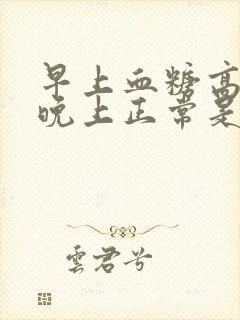 早上血糖高
晚上正常是
雲君兮